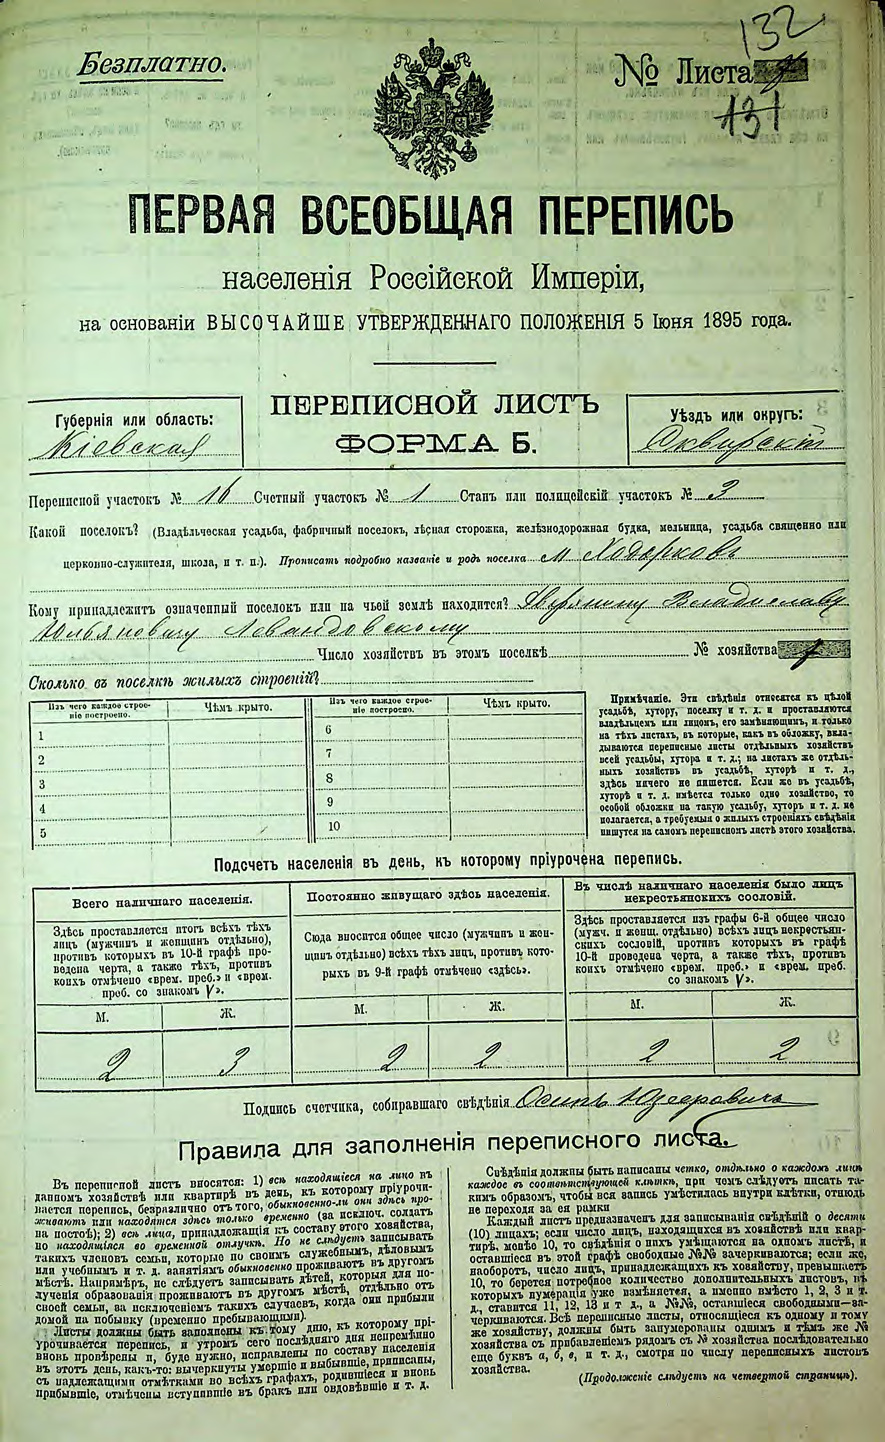 132
Безплатно.
№ Листа
131
ПЕРВАЯ ВСЕОБЩАЯ ПЕРЕПИСЬ
населенія Россійской Имперіи,
на основаніи ВЫСОЧАЙШЕ УТВЕРЖДЕННАГО ПОЛОЖЕНІЯ 5 Іюня 1895 года.
ПЕРЕПИСНОЙ ЛИСТЪ
ФОРМА Б.
Губернія или область:
Кіевская
Уѣздъ или округъ:
Сквирскій
Переписной участокъ № 16 Счетный участокъ № 1 Станъ или полицейскій участокъ № 3
Какой поселокъ? (Владѣльческая усадьба, фабричный поселокъ, лѣсная сторожка, желѣзнодорожная будка, мельница, усадьба священно или
церковно-служителя, школа, и т. п.). Прописать подробно названіе и родъ поселка м Ходорковъ
Кому принадлежитъ означенный поселокъ или на чьей землѣ находится? Дворянину Владиславу
Юльяновичу Левандовскому
Число хозяйствъ въ этомъ поселкѣ № хозяйства
Сколько въ поселкѣ жилыхъ строеній?
Изъ чего каждое строеніе построено. Чѣмъ крыто. Изъ чего каждое строеніе построено. Чѣмъ крыто.
1 6
2 7
3 8
4 9
5 10
Примѣчаніе. Эти свѣдѣнія относятся къ цѣлой
усадьбѣ, хутору, поселку и т. д. и проставляются
владѣльцемъ или лицомъ, его замѣняющимъ, и только
на тѣхъ листахъ, въ которые, какъ въ обложку, вкла-
дываются переписные листы отдѣльныхъ хозяйствъ
всей усадьбы, хутора и т. д.; на листахъ же отдѣль-
ныхъ хозяйствъ въ усадьбѣ, хуторѣ и т. д.,
здѣсь ничего не пишется. Если же въ усадьбѣ,
хуторѣ и т. д. имѣется только одно хозяйство, то
особой обложки на такую усадьбу, хуторъ и т. д. не
полагается, а требуемыя о жилыхъ строеніяхъ свѣдѣнія
пишутся на самомъ переписномъ листѣ этого хозяйства.
Подсчетъ населенія въ день, къ которому пріурочена перепись.
Всего наличнаго населенія.
Здѣсь проставляется итогъ всѣхъ тѣхъ
лицъ (мужчинъ и женщинъ отдѣльно),
противъ которыхъ въ 10-й графѣ про-
ведена черта, а также тѣхъ, противъ
коихъ отмѣчено «врем. преб.» и «врем.
преб. со знакомъ V».
М. Ж.
2 3
Постоянно живущаго здѣсь населенія.
Сюда вносится общее число (мужчинъ и жен-
щинъ отдѣльно) всѣхъ тѣхъ лицъ, противъ кото-
рыхъ въ 9-й графѣ отмѣчено «здѣсь».
М. Ж.
2 2
Въ числѣ наличнаго населенія было лицъ
некрестьянскихъ сословій.
Здѣсь проставляется изъ графы 6-й общее число
(мужч. и женщ. отдѣльно) всѣхъ лицъ некрестьян-
скихъ сословій, противъ которыхъ въ графѣ
10-й проведена черта, а также тѣхъ, противъ
коихъ отмѣчено «врем. преб.» и «врем. преб.
со знакомъ V».
М. Ж.
2 2
Подпись счетчика, собиравшаго свѣдѣнія Осипъ
Правила для заполненія переписного листа.
Въ переписной листъ вносятся: 1) всѣ находящіеся на лицо въ
данномъ хозяйствѣ или квартирѣ въ день, къ которому пріурочи-
вается перепись, безразлично отъ того, обыкновенно-ли они здѣсь про-
живаютъ или находятся здѣсь только временно (за исключ. солдатъ
на постоѣ); 2) всѣ лица, принадлежащія къ составу этого хозяйства,
но находящіяся во временной отлучкѣ. Но не слѣдуетъ записывать
такихъ членовъ семьи, которые по своимъ служебнымъ, дѣловымъ
или учебнымъ и т. д. занятіямъ обыкновенно проживаютъ въ другомъ
мѣстѣ. Напримѣръ, не слѣдуетъ записывать дѣтей, которыя для по-
лученія образованія проживаютъ въ другомъ мѣстѣ, отдѣльно отъ
своей семьи, за исключеніемъ такихъ случаевъ, когда они прибыли
домой на побывку (временно пребывающими).
Листы должны быть заполнены къ тому дню, къ которому прі-
урочивается перепись, и утромъ сего послѣдняго дня непремѣнно
вновь провѣрены и, буде нужно, исправлены по составу населенія
въ этотъ день, какъ-то: вычеркнуты умершіе и выбывшіе, приписаны,
съ надлежащими отмѣтками во всѣхъ графахъ, родившіеся и вновь
прибывшіе, отмѣчены вступившіе въ бракъ или овдовѣвшіе и т. д.
Свѣдѣнія должны быть написаны четко, отдѣльно о каждомъ лицѣ
каждое въ соотвѣтствующей клѣткѣ, при чемъ слѣдуетъ писать та-
кимъ образомъ, чтобы вся запись умѣстилась внутри клѣтки, отнюдь
не переходя за ея рамки
Каждый листъ предназначенъ для записыванія свѣдѣній о десяти
(10) лицахъ; если число лицъ, находящихся въ хозяйствѣ или квар-
тирѣ, менѣе 10, то свѣдѣнія о нихъ умѣщаются на одномъ листѣ, и
оставшіеся въ этой графѣ свободные №№ зачеркиваются; если же,
наоборотъ, число лицъ, принадлежащихъ къ хозяйству, превышаетъ
10, то берется потребное количество дополнительныхъ листовъ, въ
которыхъ нумерація уже измѣняется, а именно вмѣсто 1, 2, 3 и т.
д., ставится 11, 12, 13 и т. д., а №№, оставшіеся свободными—за-
черкиваются. Всѣ переписные листы, относящіеся къ одному и тому
же хозяйству, должны быть занумерованы однимъ и тѣмъ же №
хозяйства съ прибавленіемъ рядомъ съ № хозяйства послѣдовательно
еще буквъ а, б, в, и т. д., смотря по числу переписныхъ листовъ
хозяйства.
(Продолженіе слѣдуетъ на четвертой страницѣ).